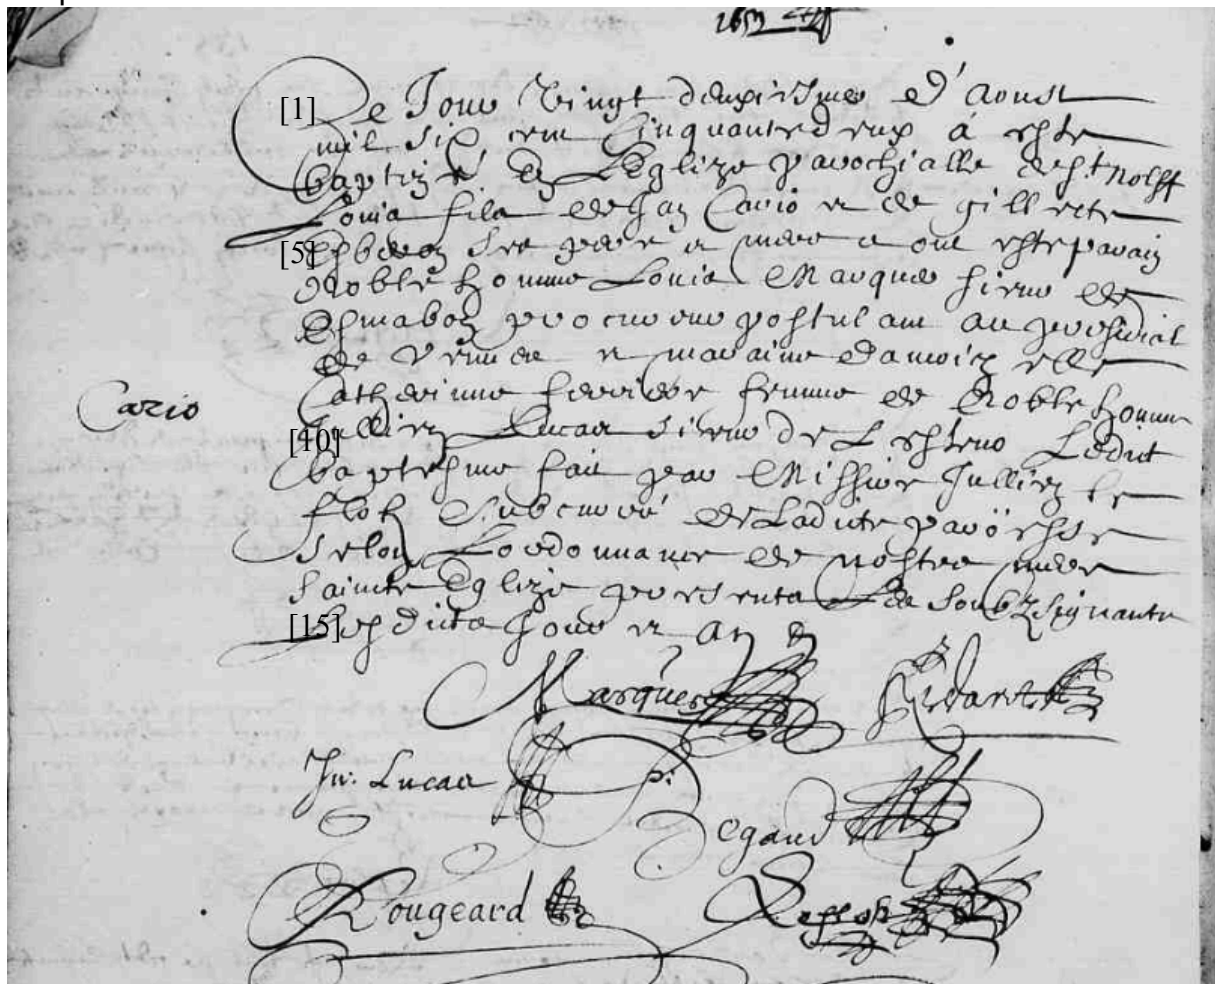 1652
[1] Ce Jour Vingt deuxiesme d'Aoust
mil six cent Cinquante deux a este
baptizé En LEglize parochialle de st nolff
Louis fils de Jan Cario et de gillette
[5] ses pere et mere et ont este parain
Noble homme Louis Marques sieur de
procureur postulant au presidial
de Vennes et maraine damoizelle
Catherinne femme de Noble homme
Cario
[10] Jullien Lucas sieur de Ledit
baptesme fait par Missire Jullien le
floh Subcuré de Ladite paroësse
selon Lordonnance de nostre mere
sainte Eglize presents Les Soubzsignants
[15] Lesdits Jour et An
Marques
Lucas
Rougeard
Lefloh